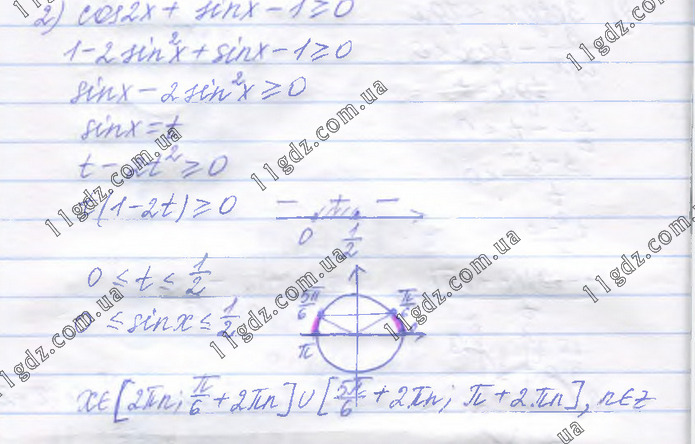 2) cos2x + sinx - 1 ≥ 0
1 - 2sin²x + sinx - 1 ≥ 0
sinx - 2sin²x ≥ 0
sinx = t
t - 2t² ≥ 0
t(1 - 2t) ≥ 0
- + -
0 1/2
0 ≤ t ≤ 1/2
0 ≤ sinx ≤ 1/2
5π/6 π/6
π
x∈[2πn; π/6 + 2πn]∪[5π/6 + 2πn; π + 2πn], n∈z
11gdz.com.ua
11gdz.com.ua
11gdz.com.ua
11gdz.com.ua
11gdz.com.ua
11gdz.com.ua
11gdz.com.ua
11gdz.com.ua